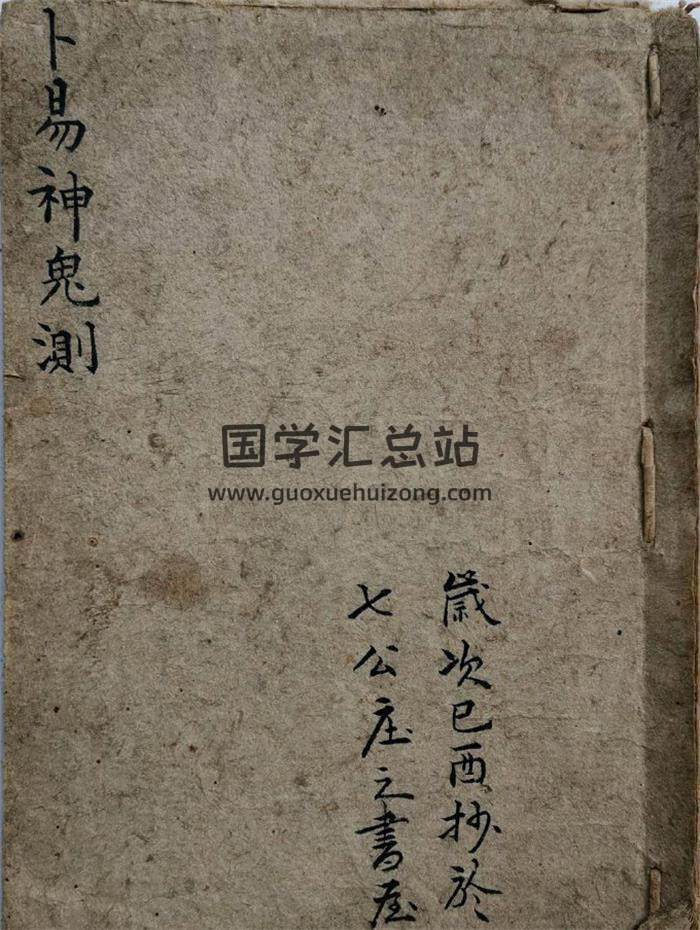 卜易神鬼测
国学汇总站
www.guoxuehuizong.com
歲次己酉抄於
七公庄之書屋